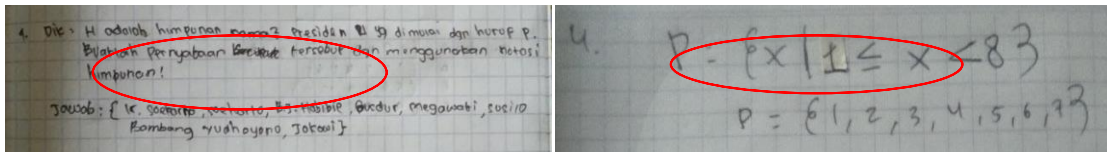 1. Dik : H adalah himpunan nama² Presiden yg dimulai dgn huruf P.
Buatlah Pernyataan tersebut dan menggunakan notasi
himpunan!
Jawab : { Ir. Soekarno, Soeharto, B.J. Habibie, Gusdur, megawati, susilo
Bambang Yudhoyono, Jokowi }
4. P = {x | 1 ≤ x < 8}
P = {1, 2, 3, 4, 5, 6, 7}